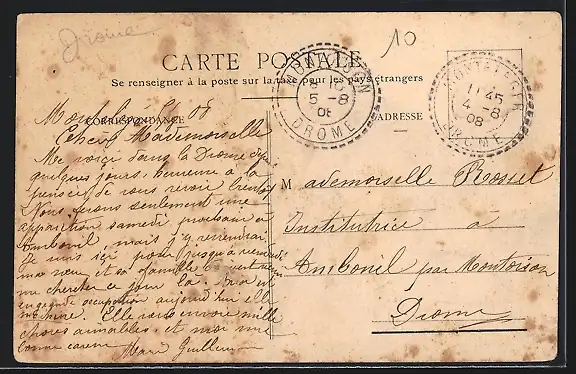 Drome
10
CARTE POSTALE
Se renseigner à la poste sur la taxe pour les pays étrangers
CORRESPONDANCE
ADRESSE
MONTOISON
5 -8
08
DROME
MONTELEGER
11 45
4 -8
08
DROME
08
Mademoiselle
Me voici dans la Drome
quelques jours, heureuse à la
pensée de vous revoir bientôt
Nous ferons seulement une
apparition samedi prochain à
Ambonil, mais j'y reviendrai
Je suis ici pour jusqu'à vendredi
ma sœur et sa famille
me chercher ce jour là.
occupation aujourd'hui elle
Elle vous envoie mille
choses aimables, et moi une
bonne caresse Marie
Mademoiselle Rosset
Institutrice à
Ambonil par Montoison
Drome